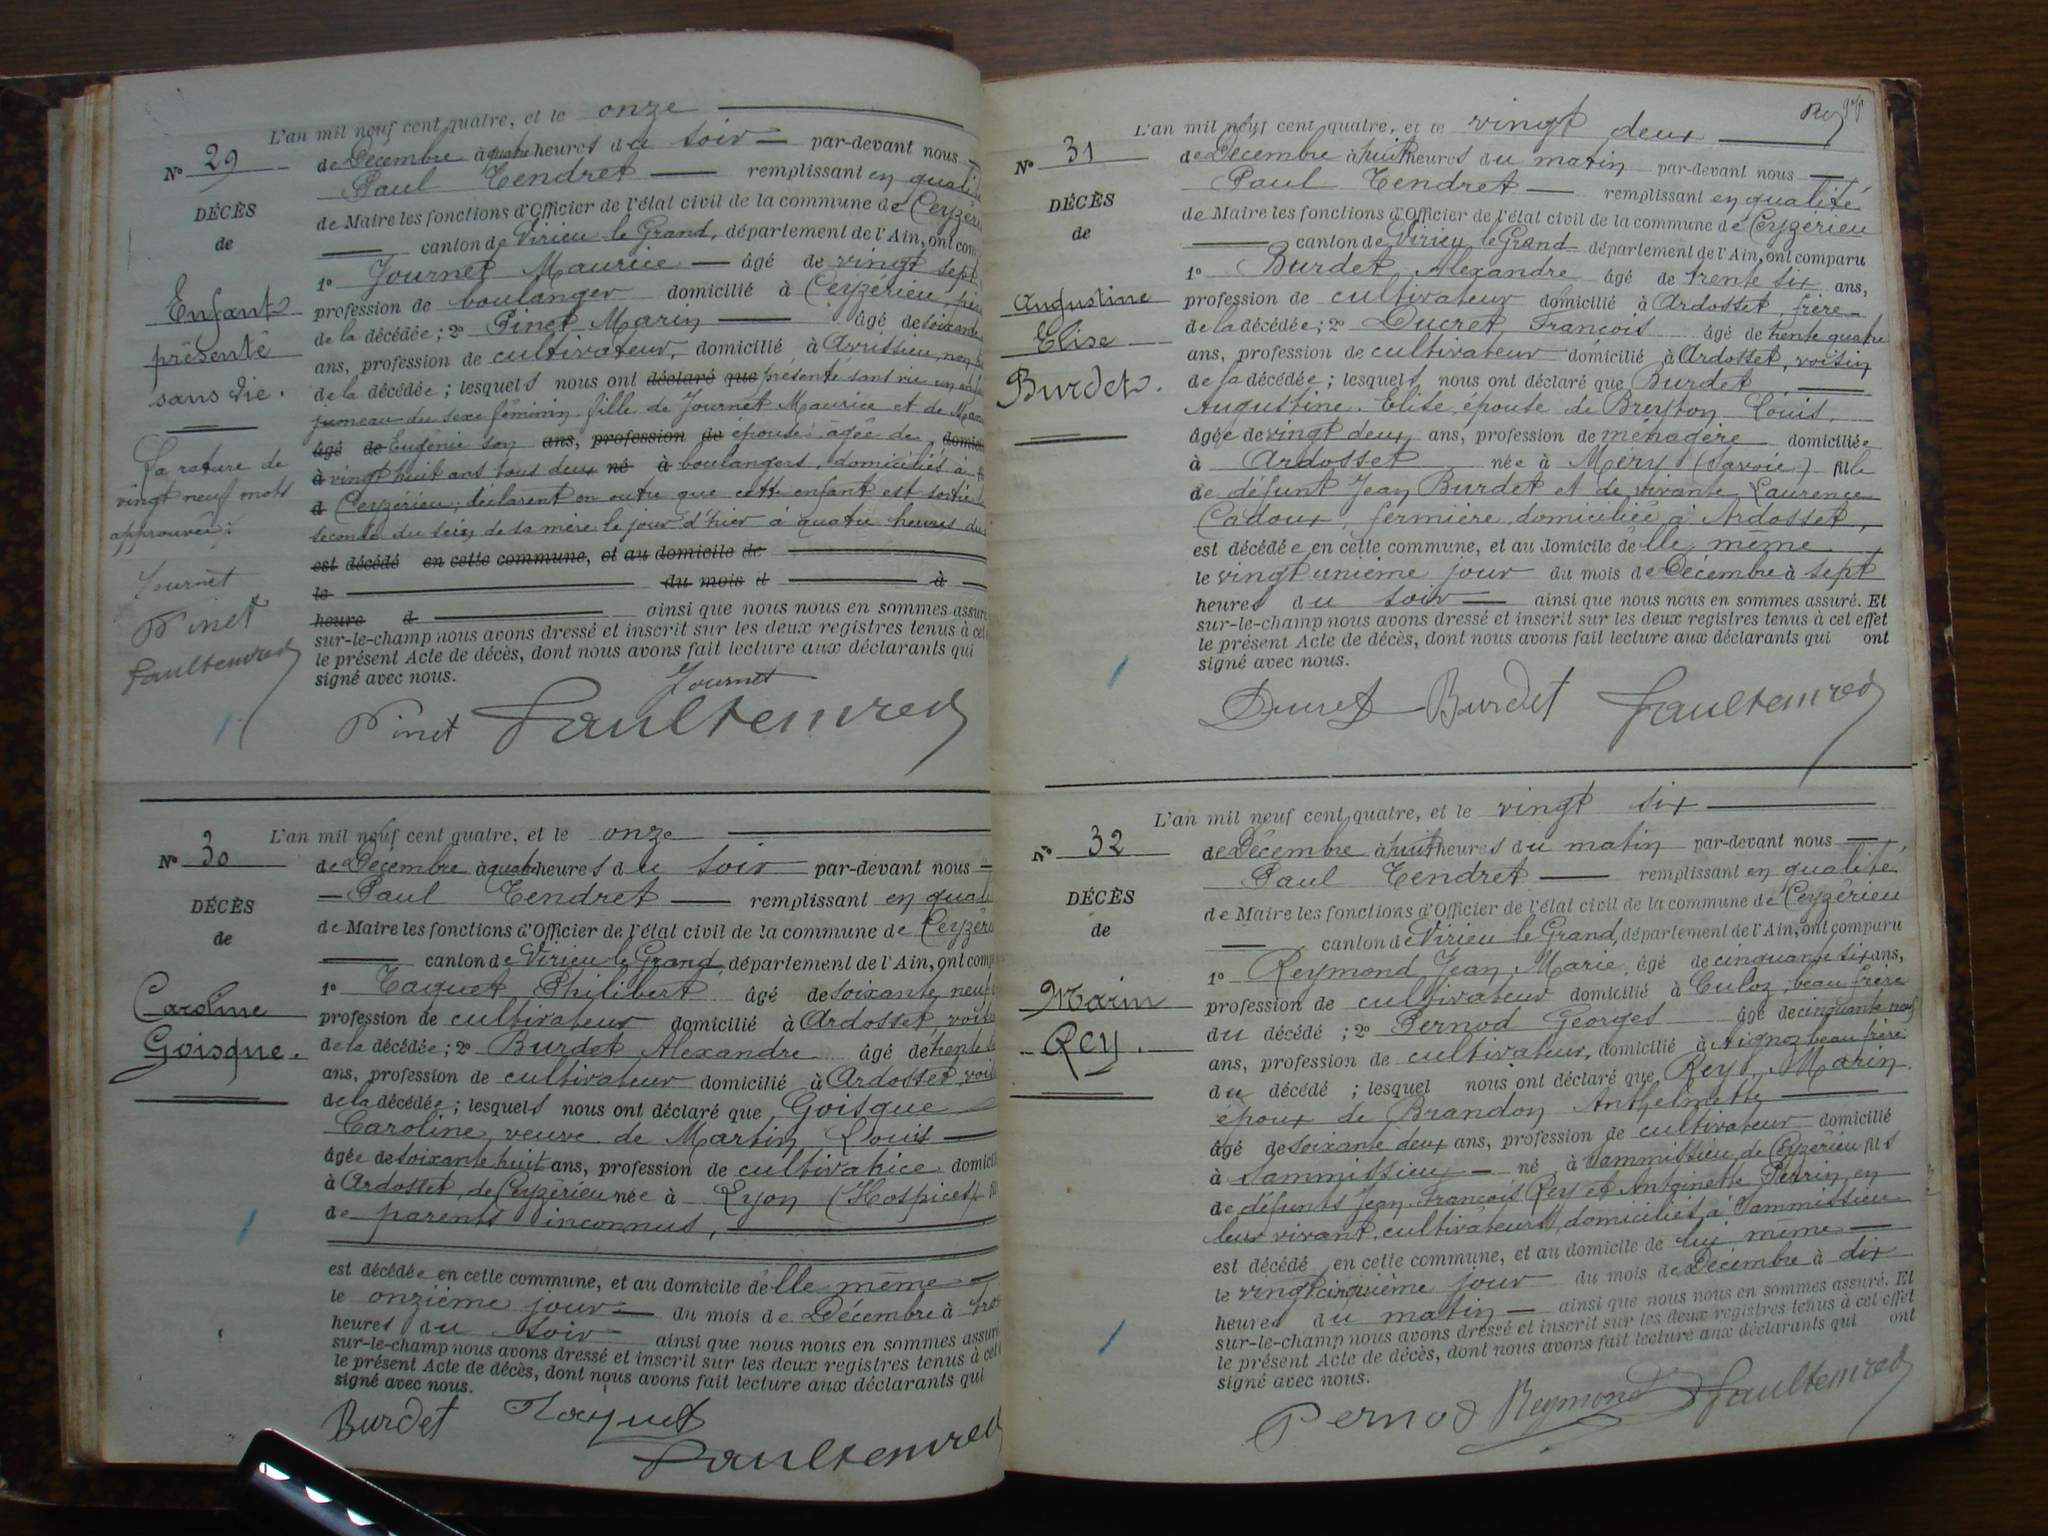 L'an mil neuf cent quatre, et le onze
N° 29
de Décembre à quatre heures du soir par-devant nous
Paul Tendret remplissant en quali
DÉCÈS
de Maire les fonctions d'Officier de l'état civil de la commune de Ceyzéri
de
canton de Virieu le Grand, département de l'Ain, ont com
1° Journet Maurice âgé de vingt sept
Enfant
profession de boulanger domicilié à Ceyzérieu, père
présenté
de la décédée; 2° Pinet Marin âgé de soixante
sans vie.
ans, profession de cultivateur, domicilié à Avrissieu, non
de la décédée; lesquels nous ont déclaré que présenté sans vie un enfant
jumeau du sexe féminin fille de Journet Maurice et de
La rature de
âgé de Eugénie son ans, profession de épouse, âgée de, domici
vingt neuf mots
à vingt huit ans tous deux né à boulangers, domiciliés à
approuvée:
à Ceyzérieu; déclarent en outre que cette enfant est sortie
seconde du sein de sa mère le jour d'hier à quatre heures du
est décédé en cette commune, et au domicile de
Journet
le du mois d à
Pinet
heure d ainsi que nous nous en sommes assuré
Paul tendret
sur-le-champ nous avons dressé et inscrit sur les deux registres tenus à cet
le présent Acte de décès, dont nous avons fait lecture aux déclarants qui
signé avec nous.
Journet
Pinet Paul tendret
L'an mil neuf cent quatre, et le onze
N° 30
de Décembre à quatre heures du soir par-devant nous
Paul Tendret remplissant en quali
DÉCÈS
de Maire les fonctions d'Officier de l'état civil de la commune de Ceyzéri
de
canton de Virieu le Grand, département de l'Ain, ont comp
1° Taquet Philibert âgé de soixante neuf
Caroline
profession de cultivateur domicilié à Ardosset, voisi
Goisque.
de la décédée; 2° Burdet Alexandre âgé de trente
ans, profession de cultivateur domicilié à Ardosset, voisi
de la décédée; lesquels nous ont déclaré que Goisque
Caroline, veuve de Martin Louis
âgée de soixante huit ans, profession de cultivatrice domicili
à Ardosset, de Ceyzérieu née à Lyon (Hospices) fi
de parents inconnus,
est décédée en cette commune, et au domicile d'elle même
le onzième jour du mois de Décembre à tro
heures du soir ainsi que nous nous en sommes assuré
sur-le-champ nous avons dressé et inscrit sur les deux registres tenus à cet
le présent Acte de décès, dont nous avons fait lecture aux déclarants qui
signé avec nous.
Burdet Taquet
Paul tendret
L'an mil neuf cent quatre, et le vingt deux
N° 31
de Décembre à huit heures du matin par-devant nous
Paul Tendret remplissant en qualité
DÉCÈS
de Maire les fonctions d'Officier de l'état civil de la commune de Ceyzérieu
de
canton de Virieu le Grand département de l'Ain, ont comparu
1° Burdet Alexandre âgé de trente six ans,
Augustine
profession de cultivateur domicilié à Ardosset, frère
Elise
de la décédée; 2° Ducret François âgé de trente quatre
ans, profession de cultivateur domicilié à Ardosset, voisin
Burdet.
de la décédée; lesquels nous ont déclaré que Burdet
Augustine Elise, épouse de Breyton Louis,
âgée de vingt deux ans, profession de ménagère domiciliée
à Ardosset née à Mery (Savoie) fille
de défunt Jean Burdet et de vivante Laurence
Cadoux, fermière, domiciliée à Ardosset,
est décédée en cette commune, et au domicile d'elle même
le vingt unième jour du mois de Décembre à sept
heures du soir ainsi que nous nous en sommes assuré. Et
sur-le-champ nous avons dressé et inscrit sur les deux registres tenus à cet effet
le présent Acte de décès, dont nous avons fait lecture aux déclarants qui ont
signé avec nous.
Ducret Burdet Paul tendret
L'an mil neuf cent quatre, et le vingt six
N° 32
de Décembre à huit heures du matin par-devant nous
Paul Tendret remplissant en qualité
DÉCÈS
de Maire les fonctions d'Officier de l'état civil de la commune de Ceyzérieu
de
canton de Virieu le Grand, département de l'Ain, ont comparu
1° Reymond Jean Marie, âgé de cinquante six ans,
Marin
profession de cultivateur domicilié à Culoz, beau frère
Rey.
du décédé; 2° Pernod Georges âgé de cinquante neuf
ans, profession de cultivateur, domicilié à Aignoz beau frère
du décédé; lesquel nous ont déclaré que Rey Marin
époux de Brandon Anthelmette
âgé de soixante deux ans, profession de cultivateur domicilié
à Sammissieu né à Sammissieu de Ceyzérieu fils
de défunts Jean-François Rey et Antoinette Perrin en
leur vivant cultivateurs, domiciliés à Sammissieu
est décédé en cette commune, et au domicile de lui même
le vingt cinquième jour du mois de Décembre à dix
heures du matin ainsi que nous nous en sommes assuré. Et
sur-le-champ nous avons dressé et inscrit sur les deux registres tenus à cet effet
le présent Acte de décès, dont nous avons fait lecture aux déclarants qui ont
signé avec nous.
Pernod Reymond Paul tendret